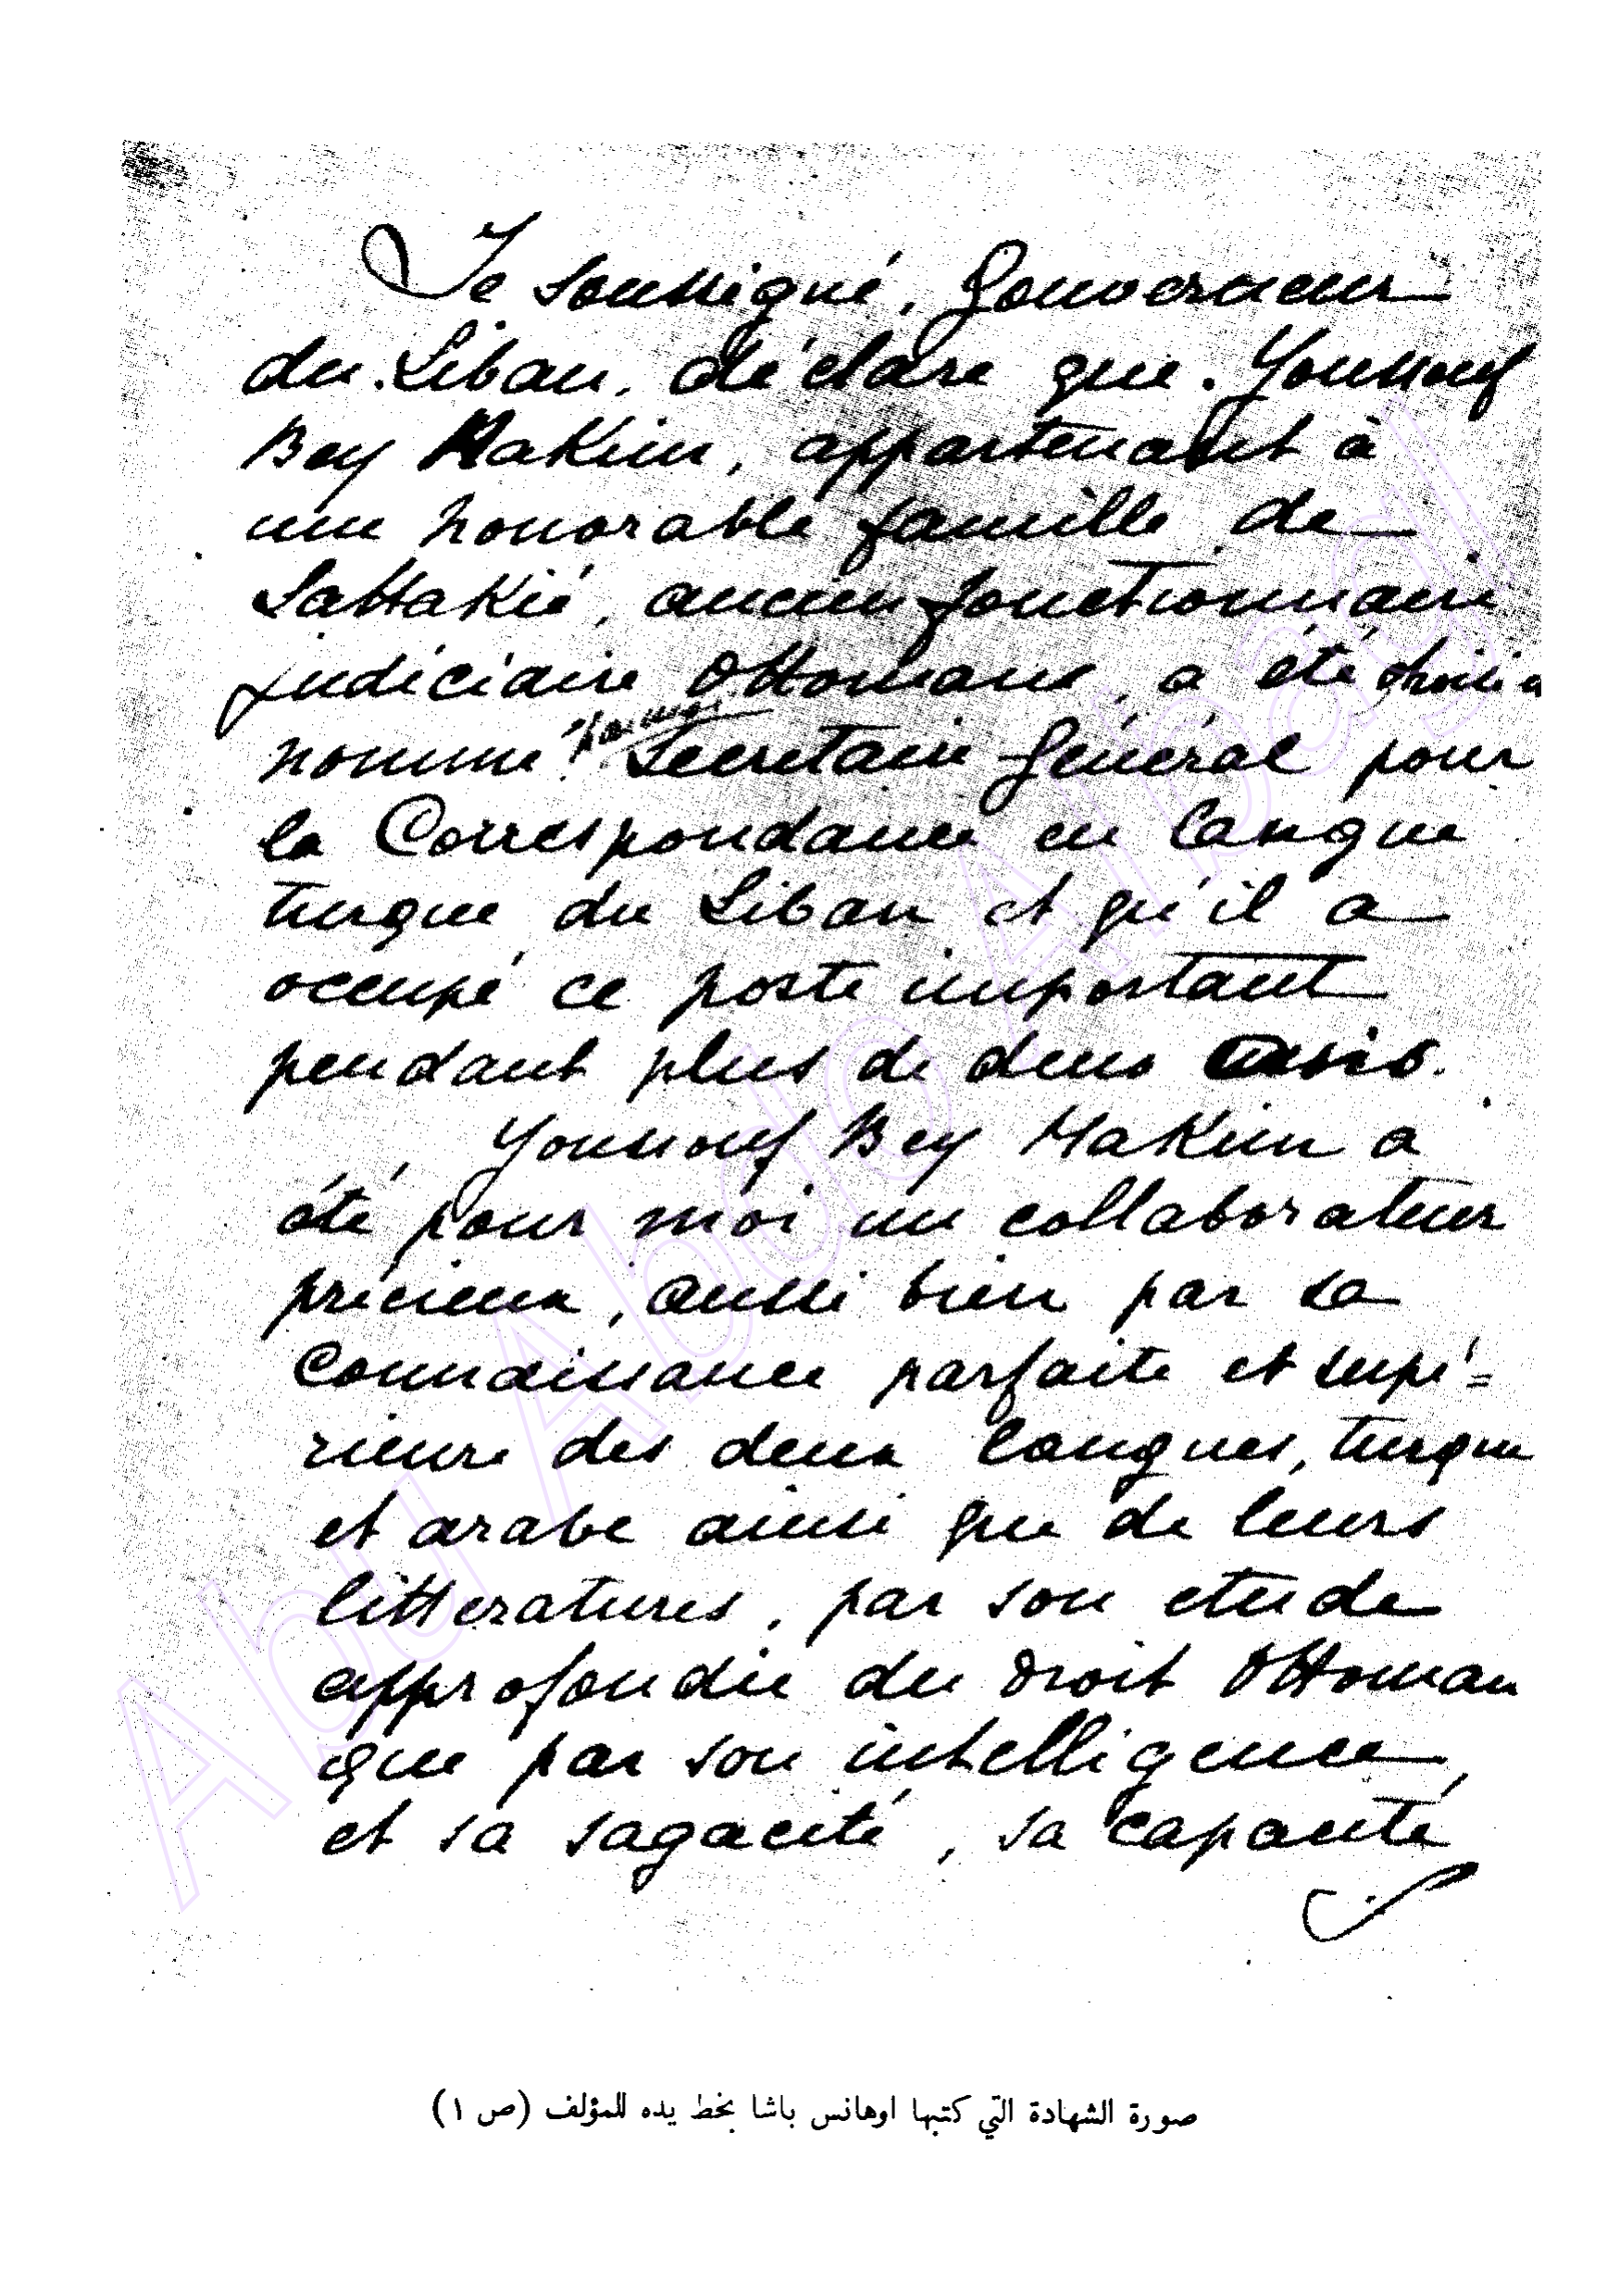 Je soussigné, Gouverneur
du Liban, déclare que Youssouf
Bey Hakim, appartenant à
une honorable famille de
Lattakié, ancien fonctionnaire
judiciaire Ottoman, a été choisi
nommé par moi Secretaire Général pour
la Correspondance en langue
turque du Liban et qu'il a
occupé ce poste important
pendant plus de deux
Youssouf Bey Hakim a
été pour moi un collaborateur
précieux, aussi bien par sa
Connaissance parfaite et supé=
rieure des deux langues, turque
et arabe ainsi que de leurs
litteratures, par son etude
approfondie du droit Ottoman
que par son intelligence,
et sa sagacité, sa capacité
صورة الشهادة التي كتبها اوهانس باشا بخط يده للمؤلف (ص ١)
Abu Abdo Albagl